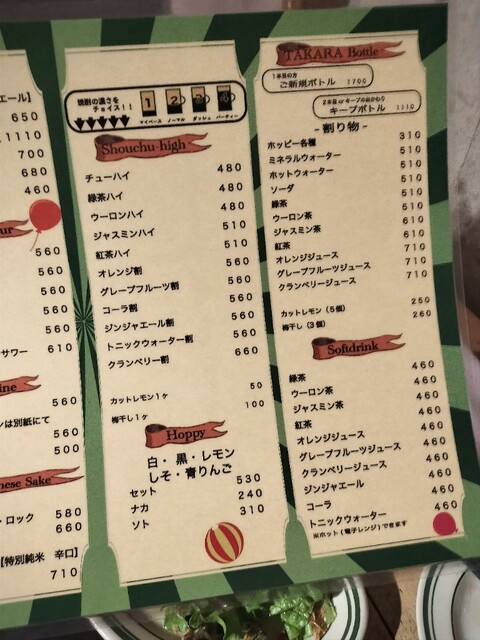 エール】
650
1110
700
680
460
ur
560
560
560
560
560
サワー 610
ine
ンは別紙にて
560
500
nese Sake
・ロック 580
660
【特別純米 辛口】
710
焼酎の濃さを
チョイス！！
1 2 3 4
マイペース ノーマル ダッシュ パーティー
Shouchu-high
チューハイ 480
緑茶ハイ 480
ウーロンハイ 480
ジャスミンハイ 510
紅茶ハイ 510
オレンジ割 560
グレープフルーツ割 560
コーラ割 560
ジンジャエール割 560
トニックウォーター割 560
クランベリー割 660
カットレモン1ヶ 50
梅干し1ヶ 100
Hoppy
白・黒・レモン
しそ・青りんご
セット 530
ナカ 240
ソト 310
TAKARA Bottle
1本目の方
ご新規ボトル 1700
2本目 or キープのおかわり
キープボトル 1110
- 割り物 -
ホッピー各種 310
ミネラルウォーター 510
ホットウォーター 510
ソーダ 510
緑茶 510
ウーロン茶 510
ジャスミン茶 610
紅茶 610
オレンジジュース 710
グレープフルーツジュース 710
クランベリージュース 710
カットレモン（5個） 250
梅干し（3個） 260
Softdrink
緑茶 460
ウーロン茶 460
ジャスミン茶 460
紅茶 460
オレンジジュース 460
グレープフルーツジュース 460
クランベリージュース 460
ジンジャエール 460
コーラ 460
トニックウォーター 460
※ホット（電子レンジ）できます